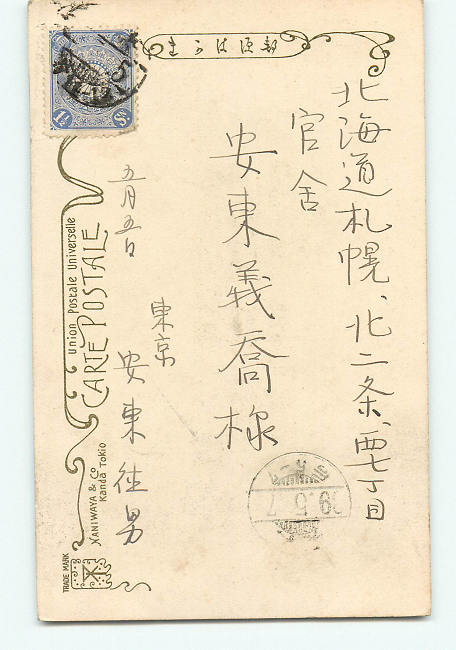 きかは便郵
北海道札幌、北二条、西七丁目
官舎
安東義喬様
五月五日
東京
安東
男
Union Postale Universelle
CARTE POSTALE
HANIWAYA & Co
Kanda Tokio
TRADE MARK
1½ Sn
39.5.7